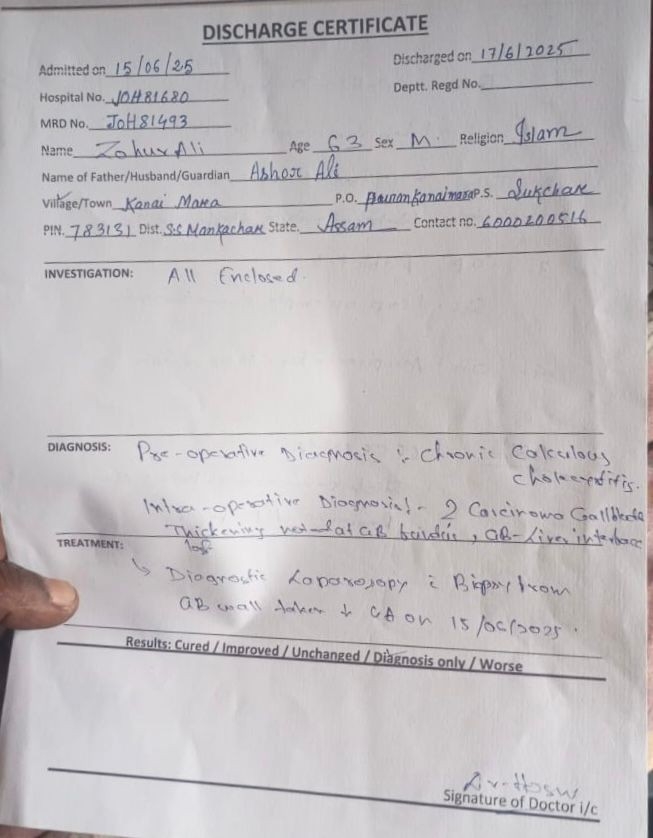 DISCHARGE CERTIFICATE
Admitted on 15/06/25 Discharged on 17/6/2025
Hospital No. JOH81680 Deptt. Regd No.
MRD No. JOH81493
Name Zohur Ali Age 63 Sex M. Religion Islam
Name of Father/Husband/Guardian Ashor Ali
Village/Town Kanai Mara P.O. P.S. Sukchar
PIN. 783131 Dist. S.S Mankachar State. Assam Contact no. 6000200516
INVESTIGATION: All Enclosed.
DIAGNOSIS: Pre-operative Diagnosis :- Chronic Calculous
Cholecystitis.
Intra-operative Diagnosis :- ? Carcinoma Gallbladder
Thickening noted at GB fundus, GB-Liver interface
TREATMENT:
↳ Diagnostic Laparoscopy c Biopsy from
GB wall taken GA on 15/06/2025.
Results: Cured / Improved / Unchanged / Diagnosis only / Worse
Signature of Doctor i/c